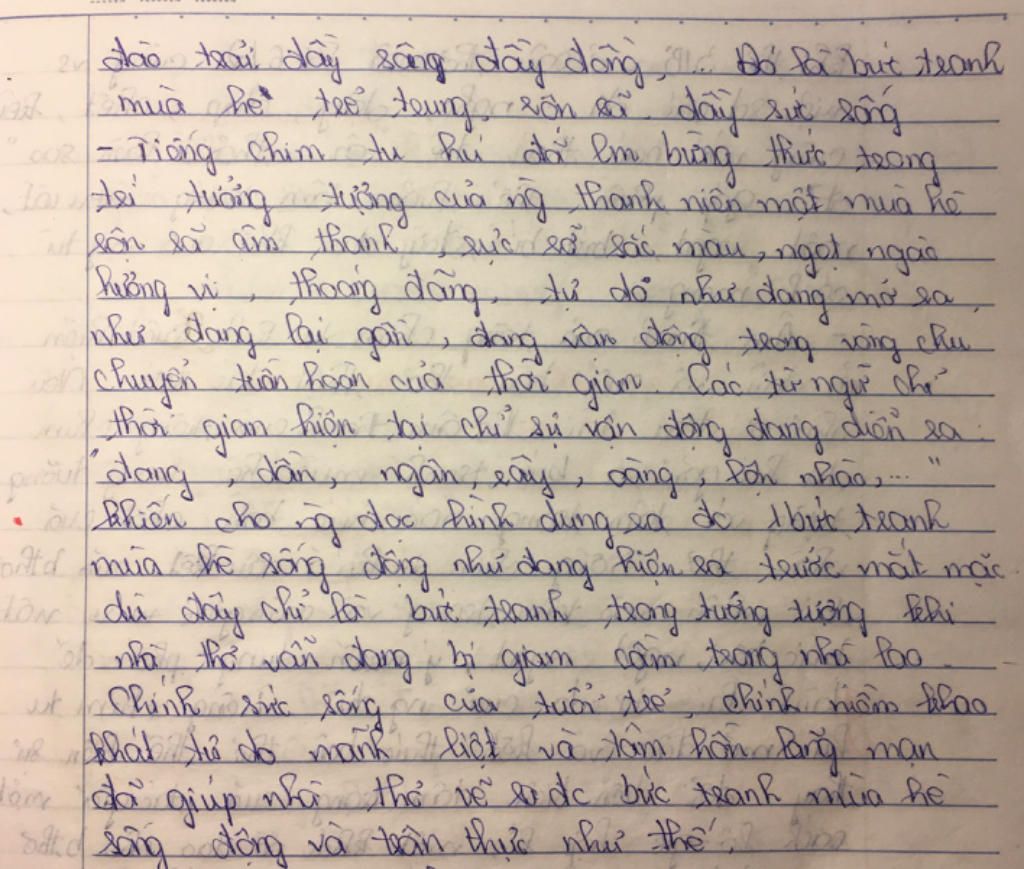 đào trải đầy sân đầy đồng, ... Đó là bức tranh
mùa hè trẻ trung, sôn sả. đầy sức sống
- Tiếng chim tu hú đã làm bừng thức trong
trí tưởng tượng của ng thanh niên một mùa hè
sôn sả âm thanh, rực rỡ sắc màu, ngọt ngào
hương vị, thoáng đãng, tự do như đang mở ra,
như đang lại gần, đang vận động trong vòng chu
chuyển tuần hoàn của thời gian. Các từ ngữ chỉ
thời gian hiện tại chỉ sự vận động đang diễn ra
"đang, dần, ngân, rây, càng, lộn nhào,..."
khiến cho ng đọc hình dung ra đc 1 bức tranh
mùa hè sống động như đang hiện ra trước mắt mặc
dù đây chỉ là bức tranh trong tưởng tượng khi
nhà thơ vẫn đang bị giam cầm trong nhà lao.
Chính sức sống của tuổi trẻ, chính niềm khao
khát tự do mãnh liệt và tâm hồn lãng mạn
đã giúp nhà thơ vẽ ra đc bức tranh mùa hè
sống động và chân thực như thế.